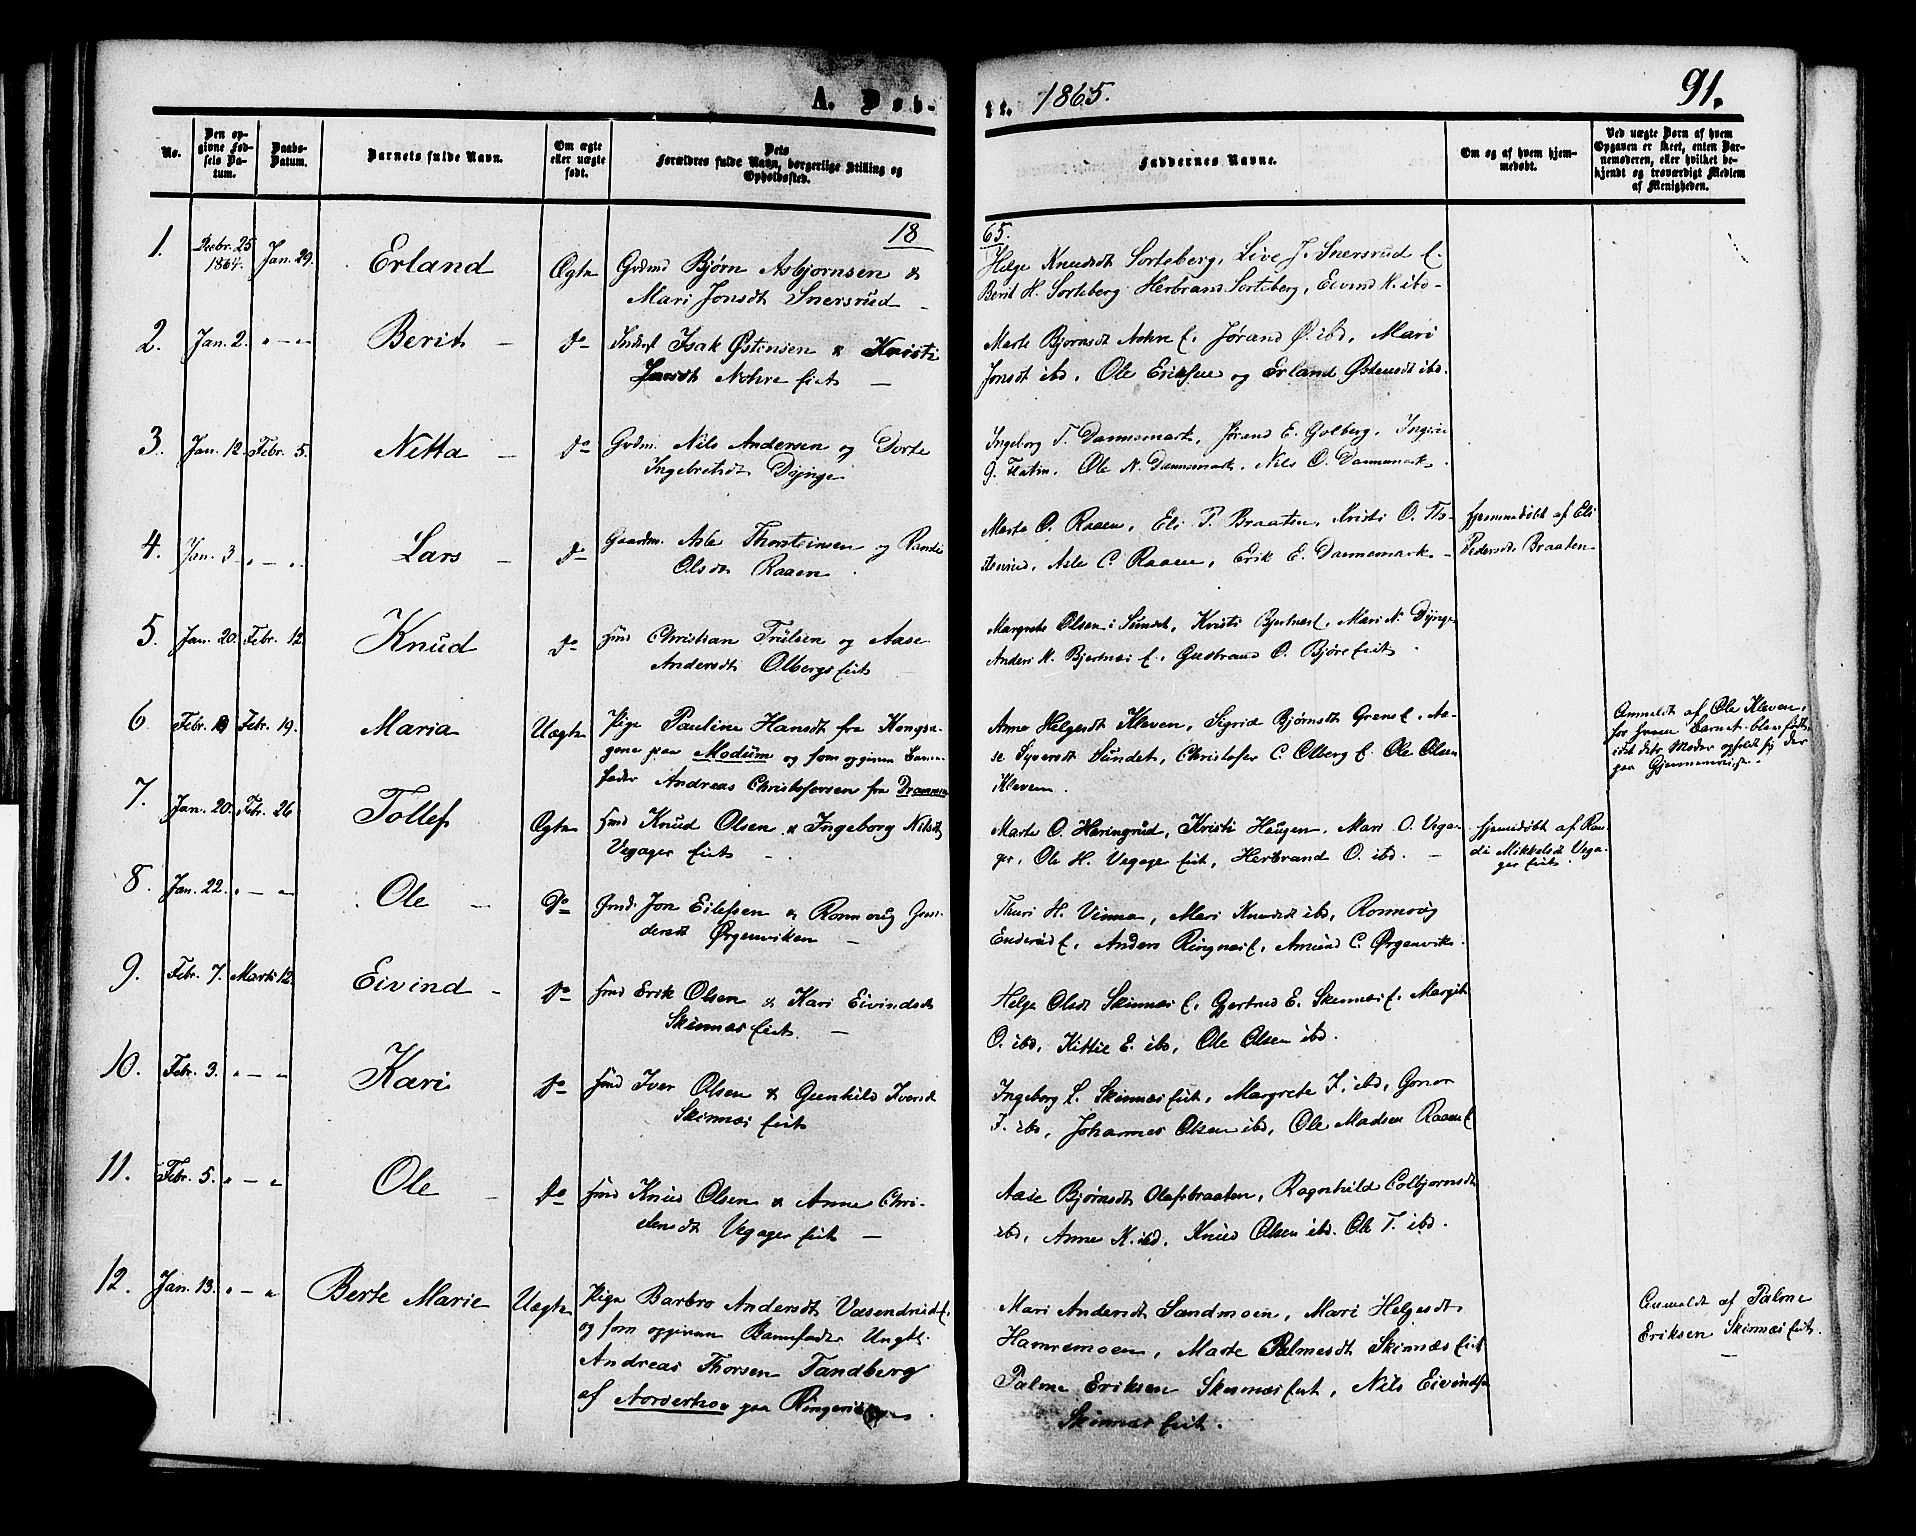 A. Døb-
te. 1865. 91.
No.
Den op-
givne Fød-
sels Da-
tum.
Daabs-
Datum.
Barnets fulde Navn.
Om ægte
eller uægte
født.
Dets
Forældres fulde Navn, borgerlige Stilling og
Opholdssted.
Faddernes Navne.
Om og af hvem hjem-
medøbt.
Ved uægte Børn af hvem
Opgaven er skeet, enten Bar-
nemoderen, eller hvilket be-
kjendt og troværdigt Medlem
af Menigheden.
18 65.
1. Decbr. 25 1864. Jan. 29. Erland Ægte Gvdmd Bjørn Asbjørnsen &
Mari Jonsdt Snersrud -
Helge Knudsdt Sorteberg, Live J. Snersrud E.
Berit H. Sorteberg Herbrand Sorteberg, Eivind K. ibd-
2. Jan. 2. " - " Berit - do Isak Østensen & Kristi
Jonsdt Nohre Eiet -
Marte Bjornsdt Nohre E. Jørand Ø. ibd, Mari
Jonsdt ibd. Ole Eriksen og Erland Østensdt ibd.
3. Jan. 12. Febr. 5. Netta - do Gvdm. Nils Andersen og Dorte
Ingebretsdt Dynge
Ingeborg T. Dannemark, Jørand E. Golberg, Ingri
G. Flatin, Ole N. Dannemark. Nils O. Dannemark.
4. Jan. 3 " - " Lars - do Gaardm. Asle Thorsteinsen og Randi
Olsdt Raaen
Marta O. Raaen, Eli P. Braaten, Kristi O.
Asle C. Raaen, Erik E. Dannemark -
Hjemmedøbt af Eli
Pedersdt Braaten
5. Jan. 20. Febr. 12 Knud do Hmd Christian Trulsen og Aase
Andersdt Olbergs Eiet
Margrete Olsen i Sundet, Kristi Bjertnæs E, Mari N. Dynge
Anders K. Bjertnæs E, Gulbrand O. Bjøre Eiet
6 Febr. Febr. 19. Maria Uægte Pige Pauline Hansdt fra Kongs-
gene paa Modum og som opgiven Barne-
fader Andreas Christofersen fra Drammen
Anne Helgesdt Kleven, Sigrid Bjørnsdt Grens E, Aa-
se Syversdt Sundet, Christofer C. Olberg E. Ole Olsen
Kleven.
Anmeldt af Ole Kleven,
for hvem Barnet blev født,
idet dets Moder opholdt sig der
paa Gjennemreise.
7. Jan. 20. Feb. 26 Tollef Ægte Hmd Knud Olsen & Ingeborg Nilsdt
Vegager Eiet -
Marte O. Haringrud, Kristi Haugen. Mari O. Vega-
ger, Ole H. Vegager Eiet, Herbrand O. ibd. -
Hjemmedøbt af Ran-
di Mikkelsdt Vega-
ger Eiet.
8. Jan. 22. " - " Ole - do Hmd. Jon Eilefsen & Ronnoug Gun-
dersdt Ørgenviken -
Thuri H. Vinna, Mari Knudsdt ibd, Ronnoug
Enderud E. Anders Ringnæs E, Amund C. Ørgenvik
9. Febr. 7. Marts 12. Eivind - do Hmd Erik Olsen & Kari Eivindsdt
Skinnæs Eiet -
Helga Olsdt Skinnæs E, Gjertrud E. Skinnæs E. Margit
O. ibd, Kittil E. ibd, Ole Olsen ibd.
10. Febr. 3. " - " Kari do Hmd Iver Olsen & Gunhild Iversdt
Skinnæs Eiet
Ingeborg L. Skinnæs Eiet, Margrete I. ibd, Gonor
I. ibd, Johannes Olsen ibd, Ole Madsen Raaen E
11. Febr. 5. " - " Ole - do Hmd Knud Olsen & Anne Chri-
stensdt Vegager Eiet -
Aase Bjørnsdt Olafsbraaten, Ragnhild Colbjørnsdt
ibd, Anne K. ibd, Knud Olsen ibd. Ole T. ibd.
12. Jan. 13. " - " Berte Marie Uægte Pige Barbro Andersdt Væsendrud E.
og som opgiven Barnefader Ungk.
Andreas Thorsen Tandberg
af Norderhov paa Ringerige.
Mari Andersdt Sandmoen, Mari Helgesdt
Hamremoen, Marte Palmesdt Skinnæs Eiet
Palme Eriksen Skinnæs Eiet, Nils Eivindsen
Skinnæs Eiet.
Anmeldt af Palme
Eriksen Skinnæs Eiet.